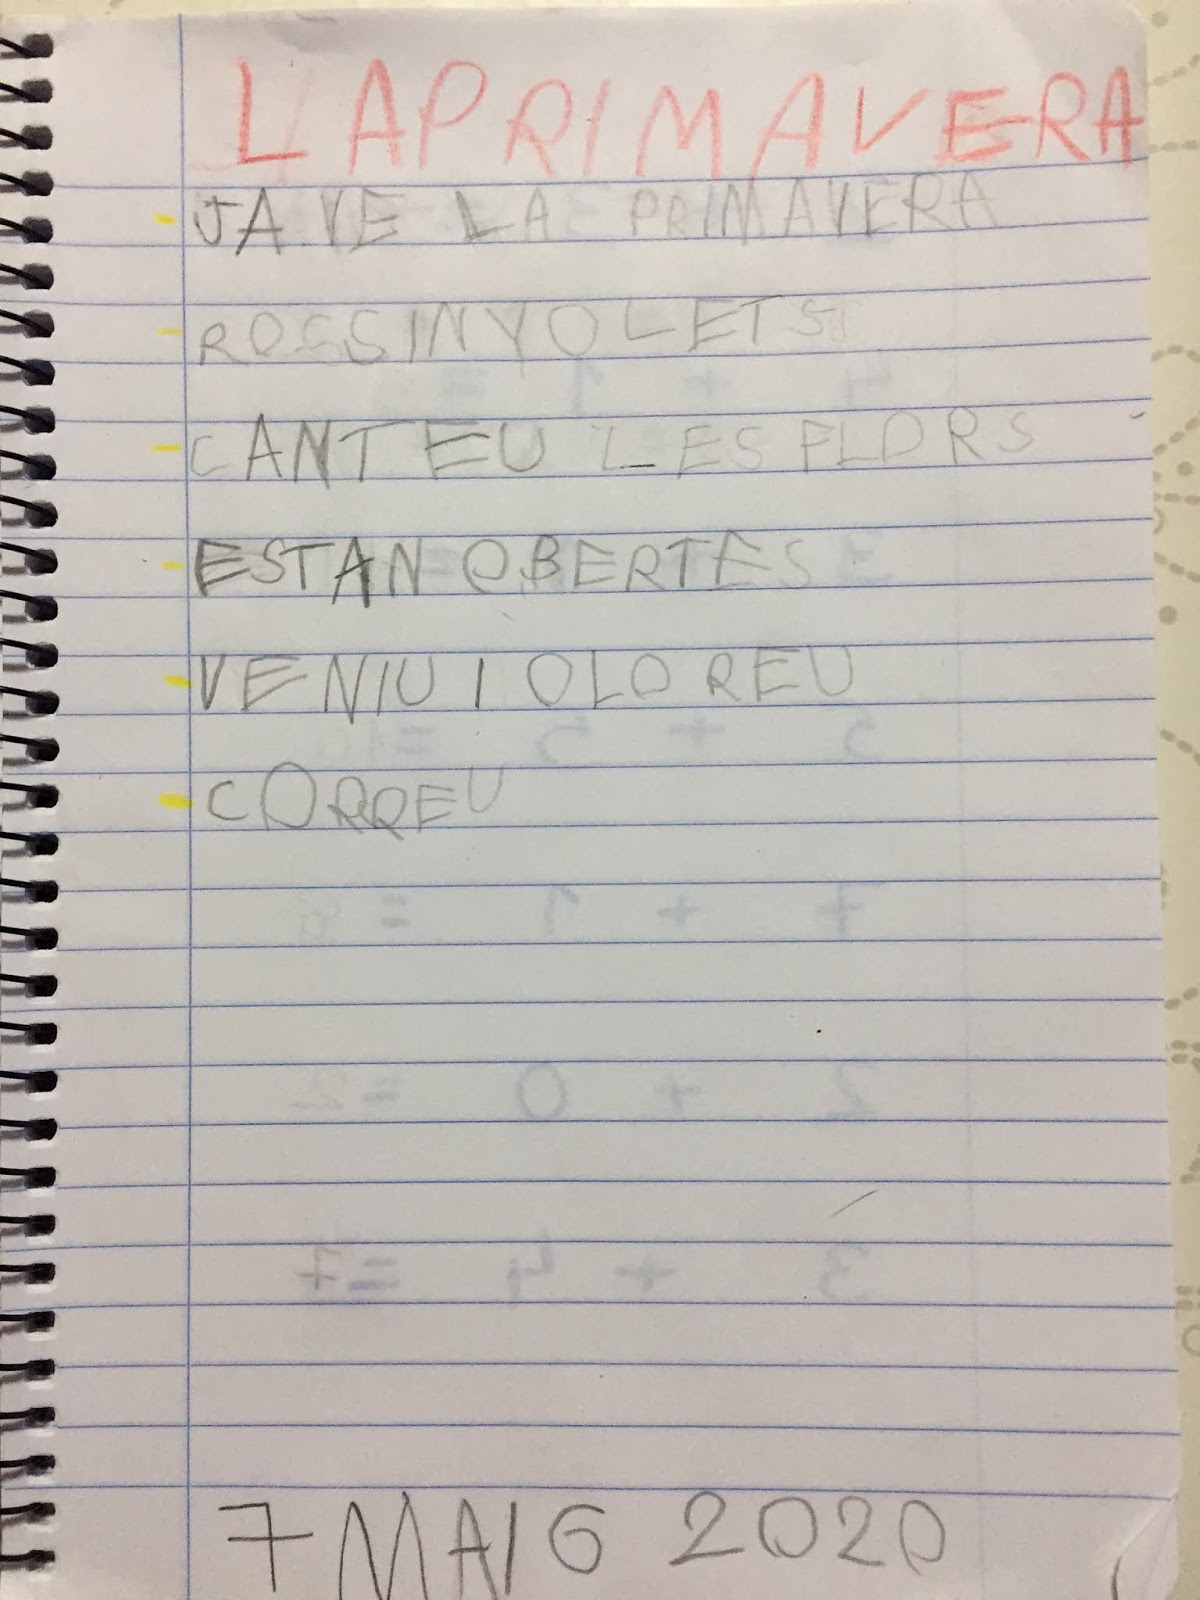 LA PRIMAVERA
JA VE LA PRIMAVERA
ROSSINYOLETS
CANTEU LES FLORS
ESTAN OBERTES
VENIU I OLOREU
CORREU
7 MAIG 2020